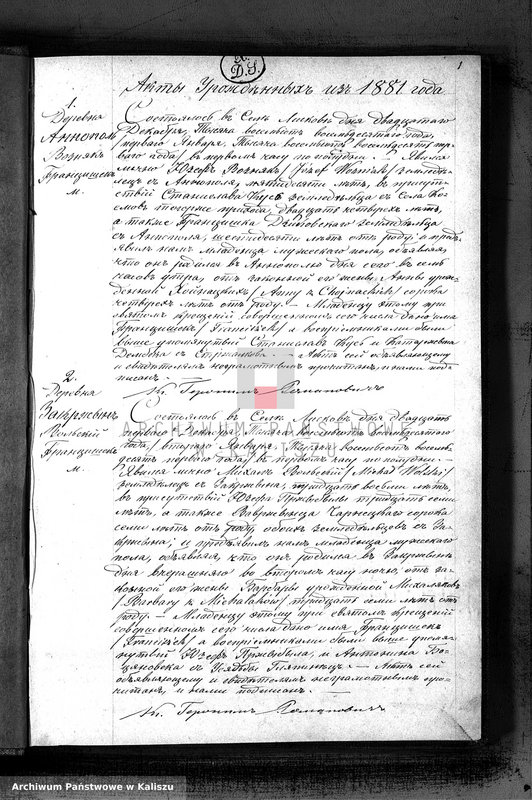 D.S.
1
Акты Урожденныхъ изъ 1881 года
1.
Деревня
Аннополь
Возняк
Францишек
м.
Состоялось въ Селѣ Лисковѣ дня двадцатаго
Декабря, Тысяча восемьсотъ восьмидесятаго года,
перваго Января, Тысяча восемьсотъ восемьдесятъ пер-
ваго года, въ первомъ часу по полудни. Явился
лично Юзефъ Вознякъ /Józef Woźniak/ земледѣ-
лецъ съ Аннополя, пятидесяти лѣтъ, въ присут-
ствіи Станислава Кусь земледѣльца съ Села
тогоже прихода, двадцати четырехъ лѣтъ,
а также Францишека земледѣльца
съ Аннополя, шестидесяти лѣтъ отъ роду, и предъ-
явилъ намъ младенца мужескаго пола, объявляя,
что онъ родился въ Аннополю дня сего въ семь
часовъ утра, отъ законной его жены Анны урож-
денной Хойнацкихъ /Anny z Chojnackich/ сорока
четырехъ лѣтъ отъ роду. Младенцу этому при
святомъ крещеніи совершенномъ сего числа дано имя
Францишекъ /Franciszek/ а воспріемниками были
выше упомянутый Станиславъ Кусь и Катаржина
съ Актъ сей объявляющему
и свидѣтелямъ неграмотнымъ прочитанъ и нами под-
писанъ.
Кс. Геронимъ Романовичъ
2.
Деревня
Закржевъ
Вольскій
Францишекъ
м.
Состоялось въ Селѣ Лисковѣ дня двадцать
перваго Декабря, Тысяча восемьсотъ восьмидесятаго
года, втораго Января, Тысяча восемьсотъ восемь-
десятъ перваго года, въ первомъ часу по полудни.
Явился лично Михалъ Вольскій /Michał Wolski/
земледѣлецъ съ Закржева, тридцати восьми лѣтъ,
въ присутствіи Юзефа тридцати семи
лѣтъ, а также Вавржинца Чарнецкаго сорока
семи лѣтъ отъ роду, обоихъ земледѣльцевъ съ За-
кржева; и предъявилъ намъ младенца мужескаго
пола, объявляя, что онъ родился въ Закржевѣ
дня вчерашняго во второмъ часу ночью, отъ за-
конной его жены Барбары урожденной Михаляковъ
/Barbary z Michalaków/ тридцати семи лѣтъ отъ
роду. Младенцу этому при святомъ крещеніи
совершенномъ сего числа дано имя Францишекъ
/Franciszek/ а воспріемниками были выше упомя-
нутый Юзефъ и Антонина
съ Актъ сей
объявляющему и свидѣтелямъ неграмотнымъ про-
читанъ, и нами подписанъ.
Кс. Геронимъ Романовичъ
ARCHIWUM PAŃSTWOWE
W KALISZU
Archiwum Państwowe w Kaliszu